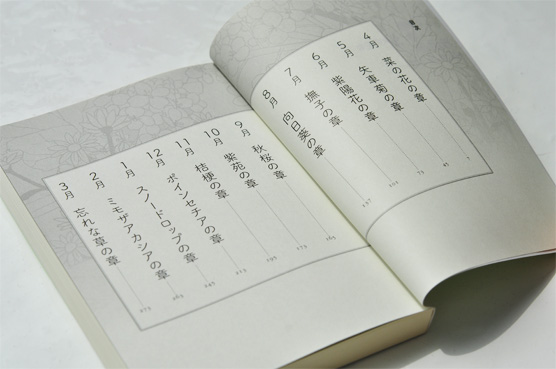 目次
4月 菜の花の章 7
5月 矢車菊の章 45
6月 紫陽花の章 73
7月 撫子の章 102
8月 向日葵の章 137
9月 秋桜の章 165
10月 紫苑の章 173
11月 桔梗の章 195
12月 ポインセチアの章 213
1月 スノードロップの章
2月 ミモザアカシアの章 265
3月 忘れな草の章 275